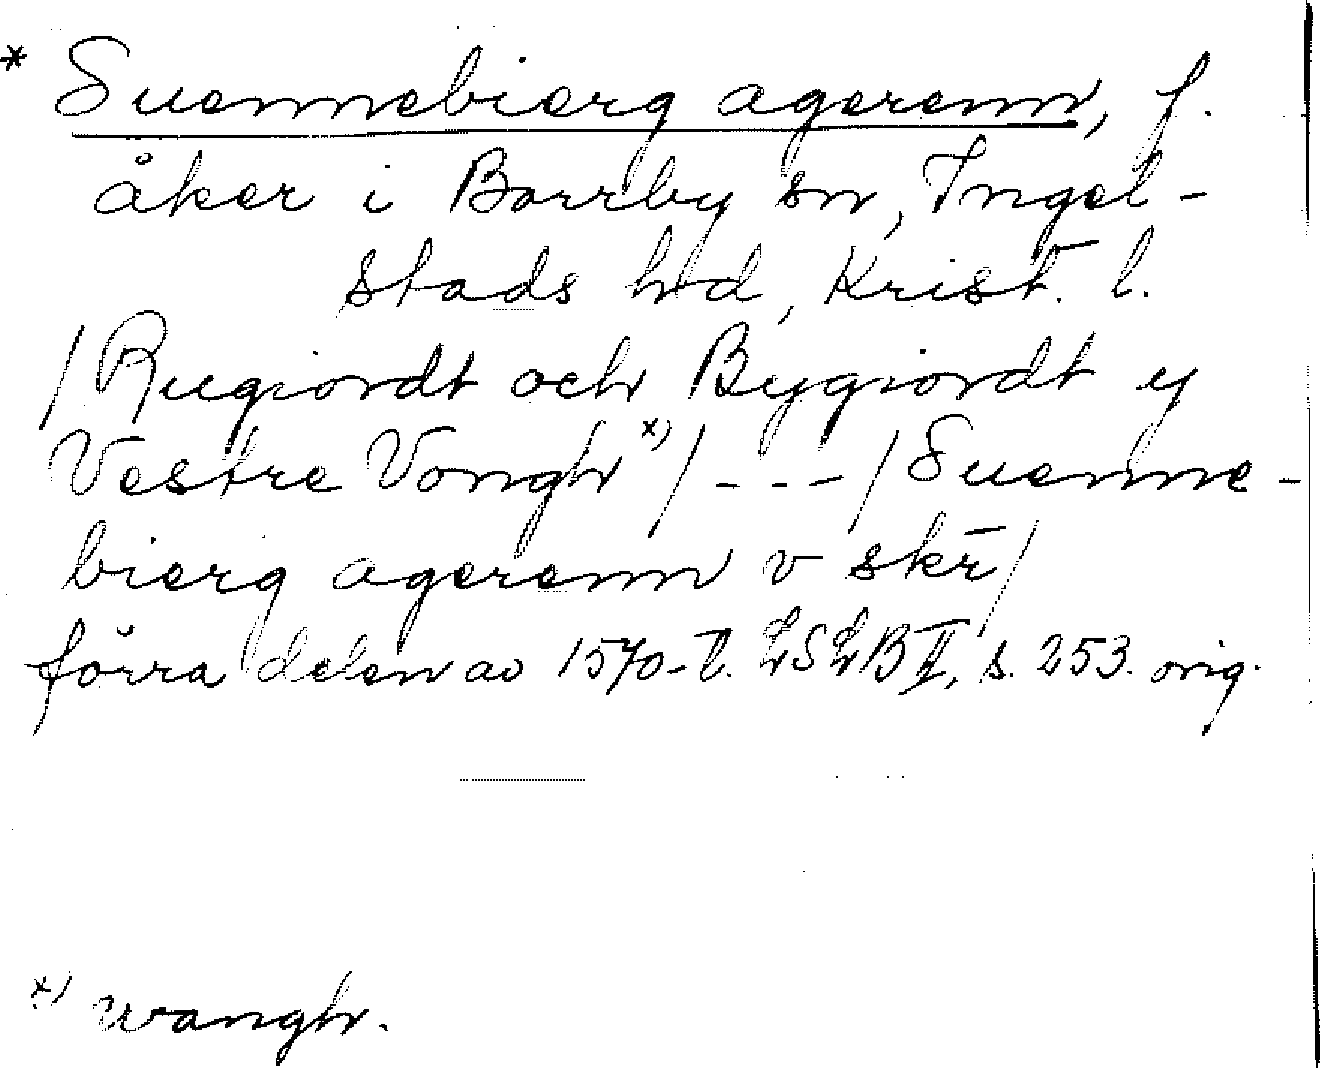 * Suennebierg agerenn, f.
åker i Borrby sn, Ingel-
stads hd, Krist. l.
/Rugiordt och Bygiordt y
Vestre Vongh x)/ - - - /Suenne-
bierg agerenn v skr/
förra delen av 1570-t. LSLB II, s. 253. orig.
x) wangh.